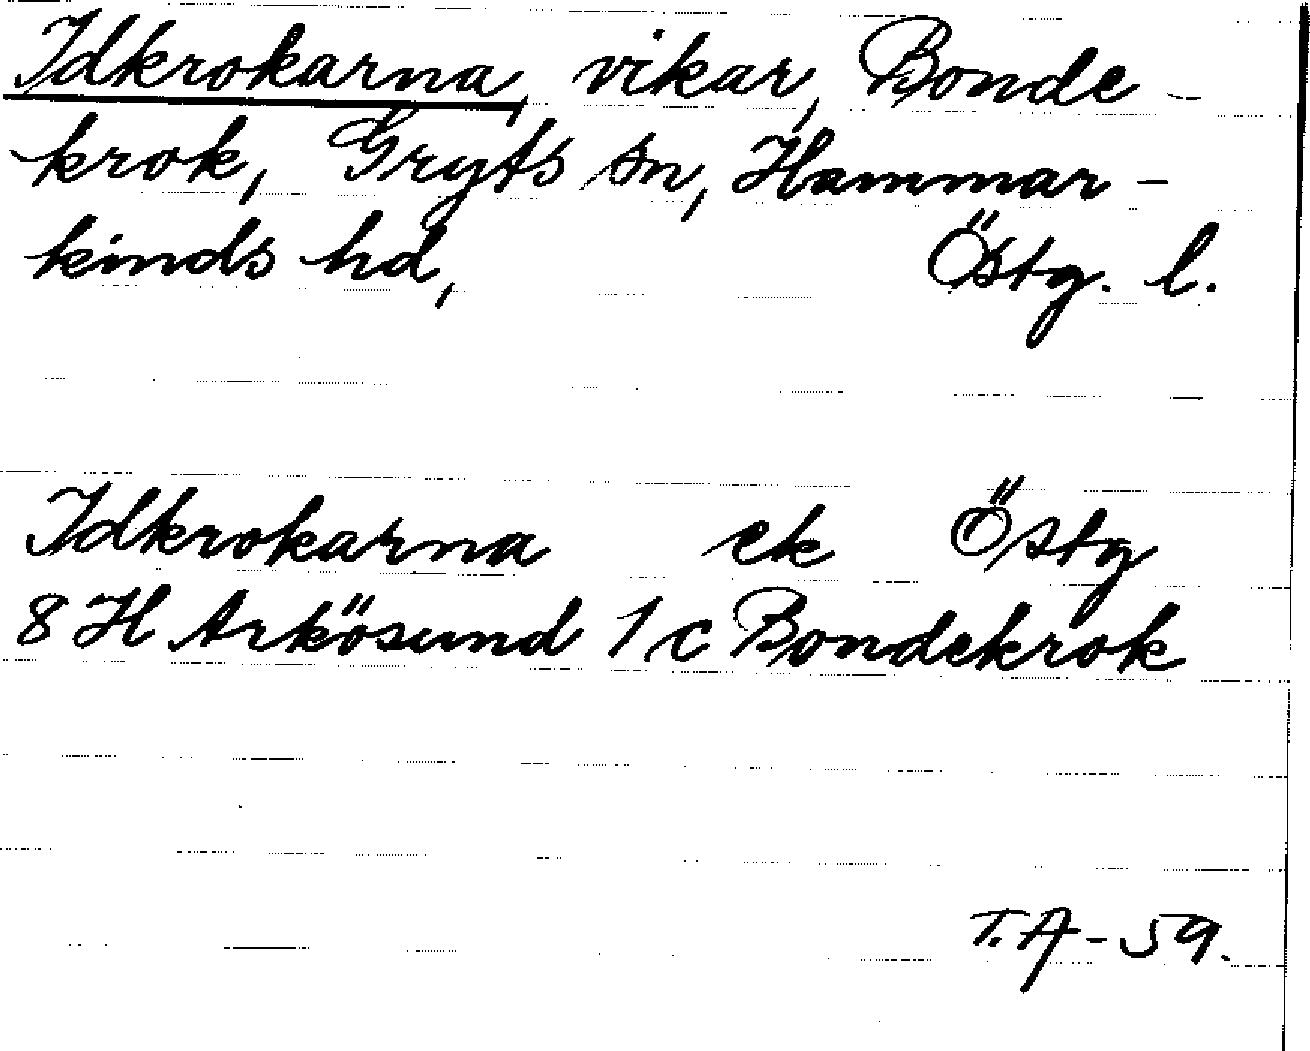 Idkrokarna, vikar, Bonde-
krok, Gryts sn, Hammar-
kinds hd, Östg. l.
Idkrokarna ek Östg
8 H Arkösund 1 c Bondekrok
T.A-59.